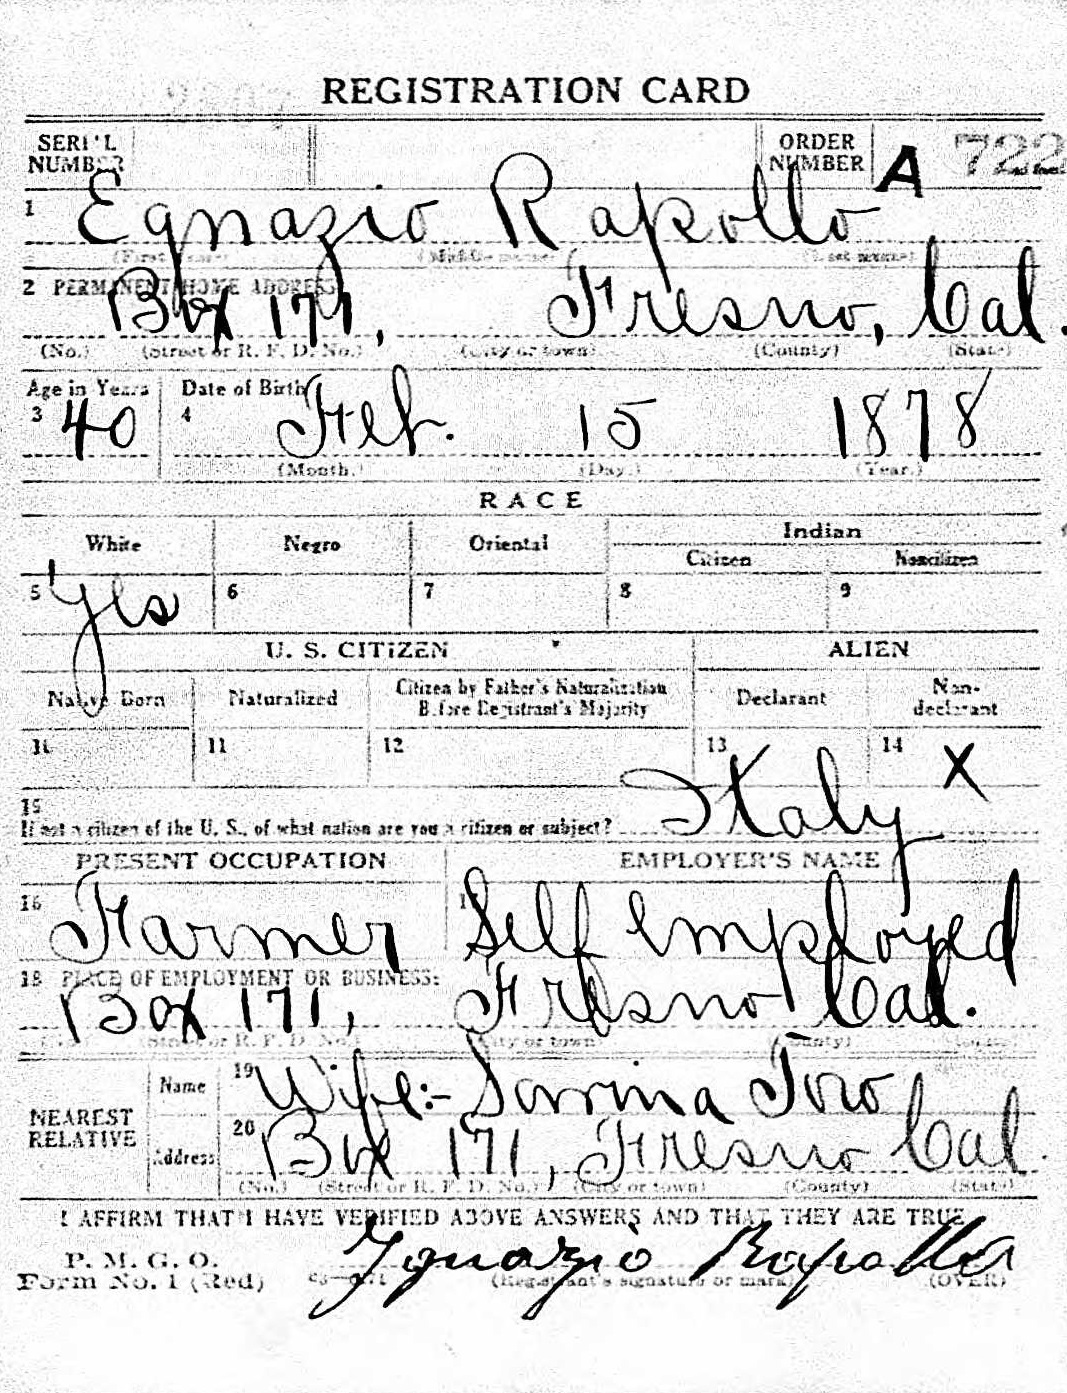 REGISTRATION CARD
SERIAL NUMBER ORDER NUMBER A 722
1 Egnazio Rapollo
(First name) (Middle name) (Last name)
2 PERMANENT HOME ADDRESS:
Box 171, Fresno, Cal.
(No.) (Street or R. F. D. No.) (City or town) (County) (State)
Age in Years Date of Birth
3 40 4 Feb. 15 1878
(Month.) (Day.) (Year.)
RACE
White Negro Oriental Indian
Citizen Noncitizen
5 Yes 6 7 8 9
U. S. CITIZEN ALIEN
Native Born Naturalized Citizen by Father's Naturalization Before Registrant's Majority Declarant Non-declarant
10 11 12 13 14 X
15
If not a citizen of the U. S., of what nation are you a citizen or subject? Italy
PRESENT OCCUPATION EMPLOYER'S NAME
16 Farmer 17 Self employed
18 PLACE OF EMPLOYMENT OR BUSINESS:
Box 171, Fresno Cal.
(No.) (Street or R. F. D. No.) (City or town) (County) (State)
NEAREST RELATIVE
Name 19 Wife:- Toro
Address 20 Box 171, Fresno Cal.
(No.) (Street or R. F. D. No.) (City or town) (County) (State)
I AFFIRM THAT I HAVE VERIFIED ABOVE ANSWERS AND THAT THEY ARE TRUE
P. M. G. O.
Form No. 1 (Red) Ignazio Rapolla
(Registrant's signature or mark) (OVER)